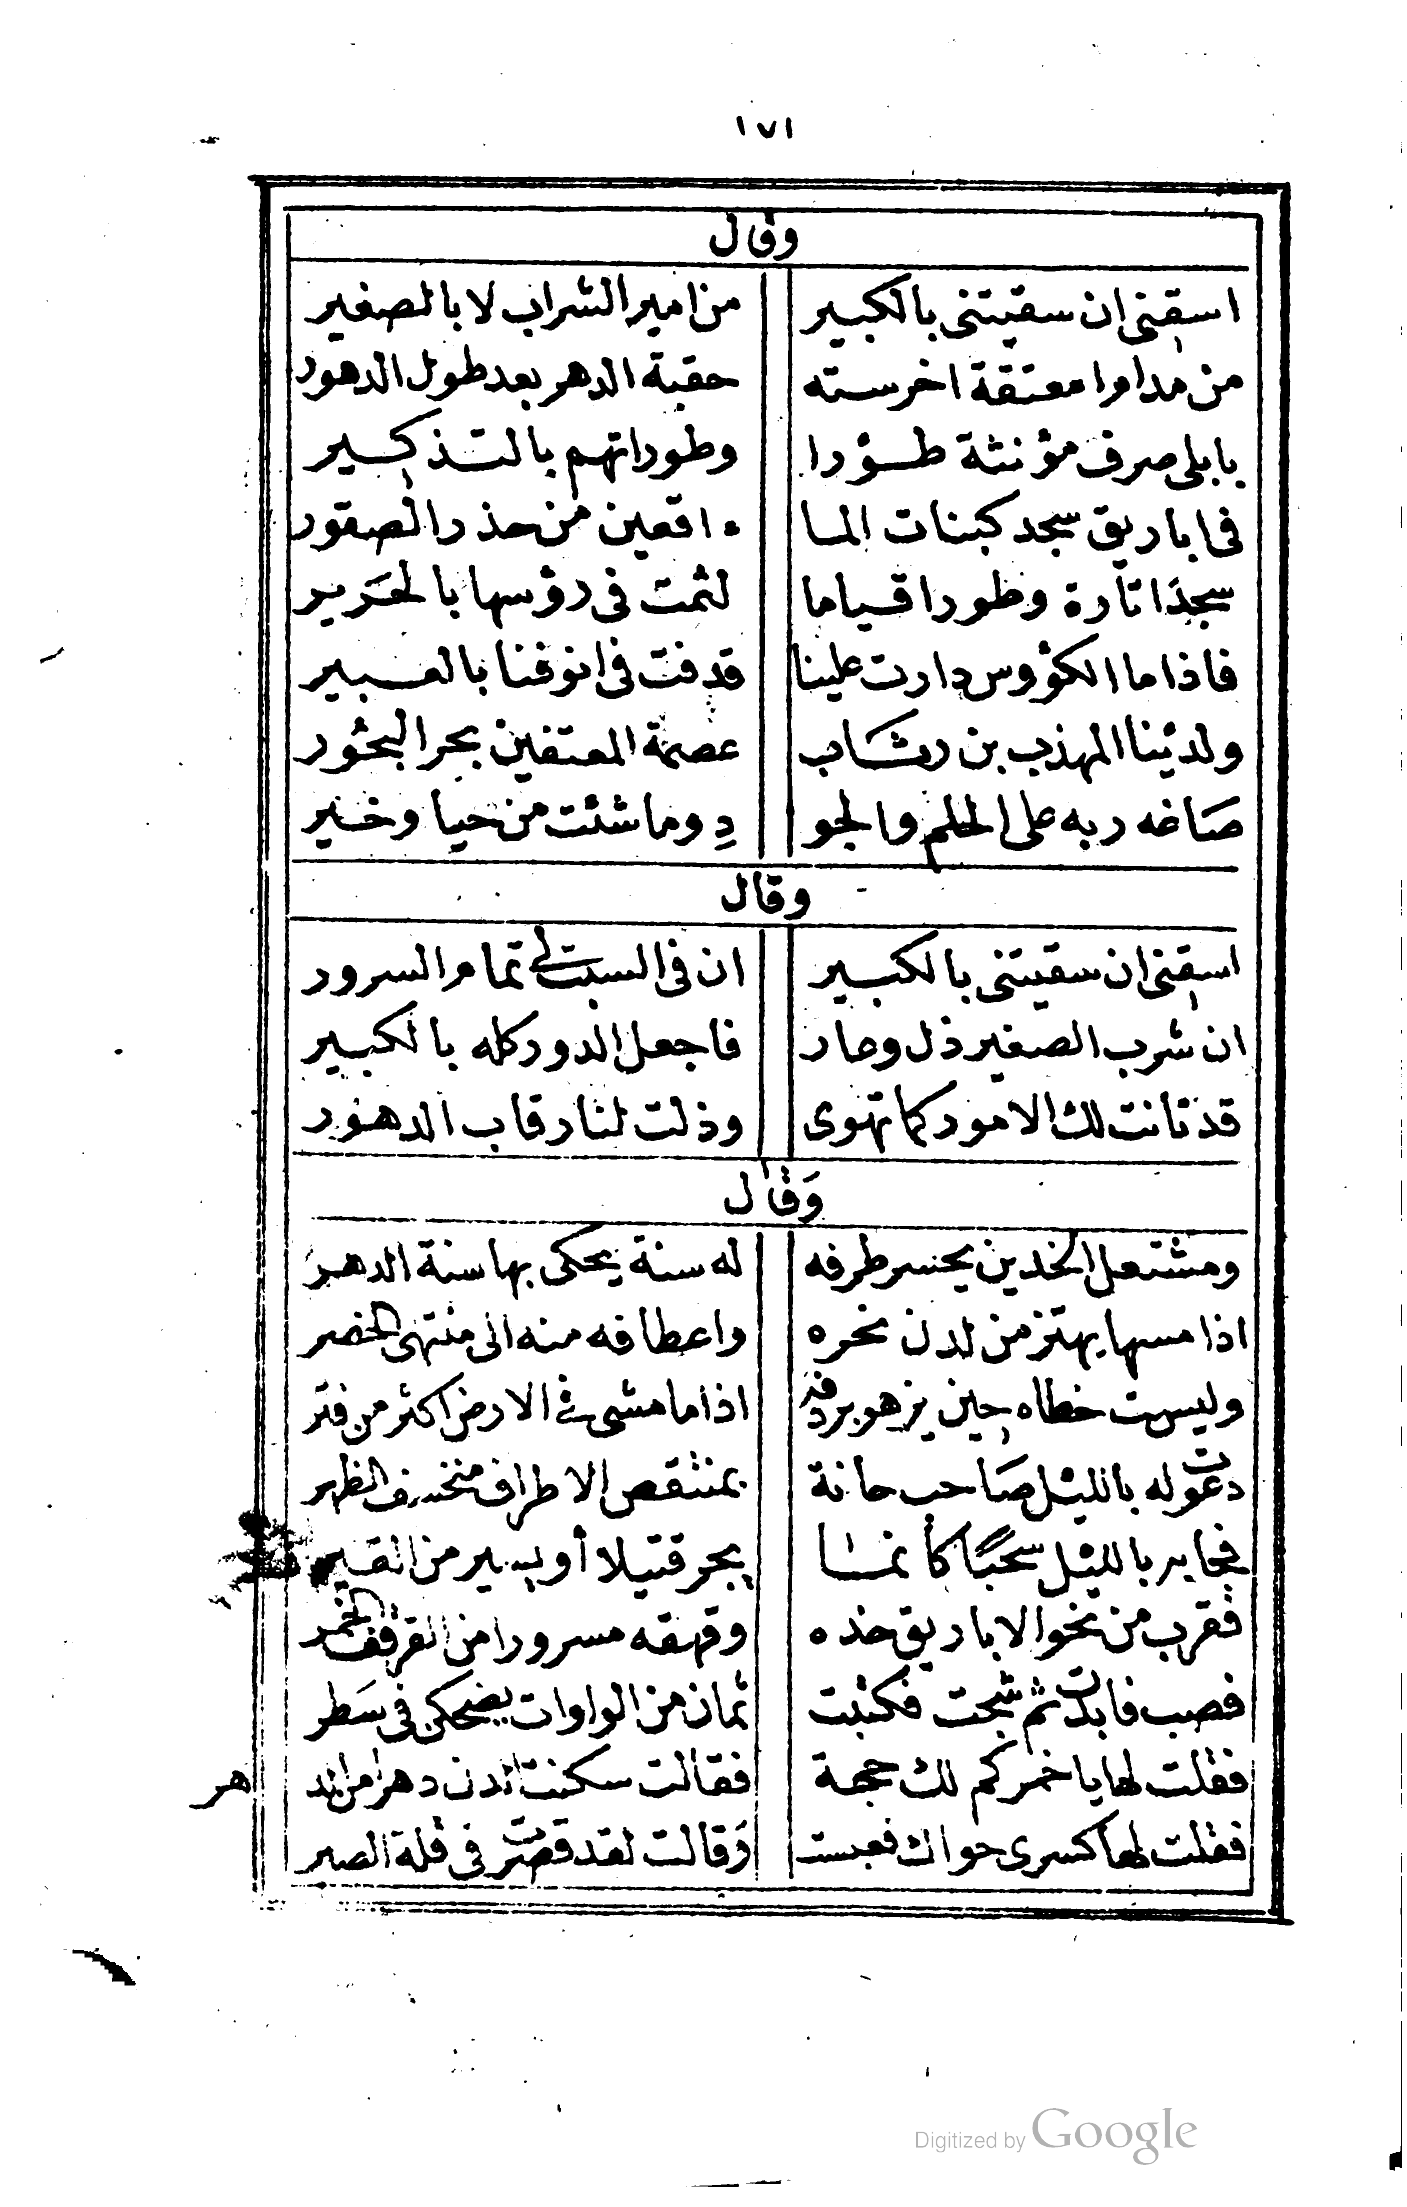 ١٧١
وقال
اسقنى ان سقيتنى بالكبير من امير الشراب لا بالصغير
من مدام معتقة اخرسته حقبة الدهر بعد طول الدهور
بابلى صرف مؤنثة طؤرا وطوراتهم بالتذكير
فى اباريق سجد كبنات الما ء اقعين من حذر الصقور
سجدا تارة وطورا قياما لثمت فى رؤسها بالحرير
فاذا ما الكؤوس دارت علينا قدفت فى انوفنا بالعبير
ولدينا المهذب بن رشاب عصمة المعتفين بحر البحور
صاغه ربه على الحلم والجو دِ وما شئت من حيا وخير
وقال
اسقنى ان سقيتنى بالكبير ان فى السبت لى تمام السرور
ان شرب الصغير ذل وعار فاجعل الدور كله بالكبير
قد تانت لك الامور كما تهوى وذلت لنا رقاب الدهور
وَقال
ومشتعل الخدين يحسر طرفه له سنة يحكى بها سنة الدهر
اذا مسها يهتز من لدن نحره واعطافه منه الى منتهى الخصر
وليست خطاه حين يزهو بردفه اذا ما مشى فى الارض اكثر من فتر
دعوت له بالليل صاحب حانة بمنتقص الاطراف منخسف الظهر
فجا به بالليل سحبا كأنما يجر قتيلا أو بسير من القير
فقرب من نحو الاباريق خده وقهقه مسرورا من القرقف الخمر
فصب فابدت ثم شجت فكتبت ثمان من الواوات يضحكن فى سَطر
فقلت لها يا خمر كم لك حجة فقالت سكنت الدن دهرا من الد
هر
فقلت لها كسرى حواك فعبست وَقالت لقد قصرت فى قلة الصبر
Digitized by Google